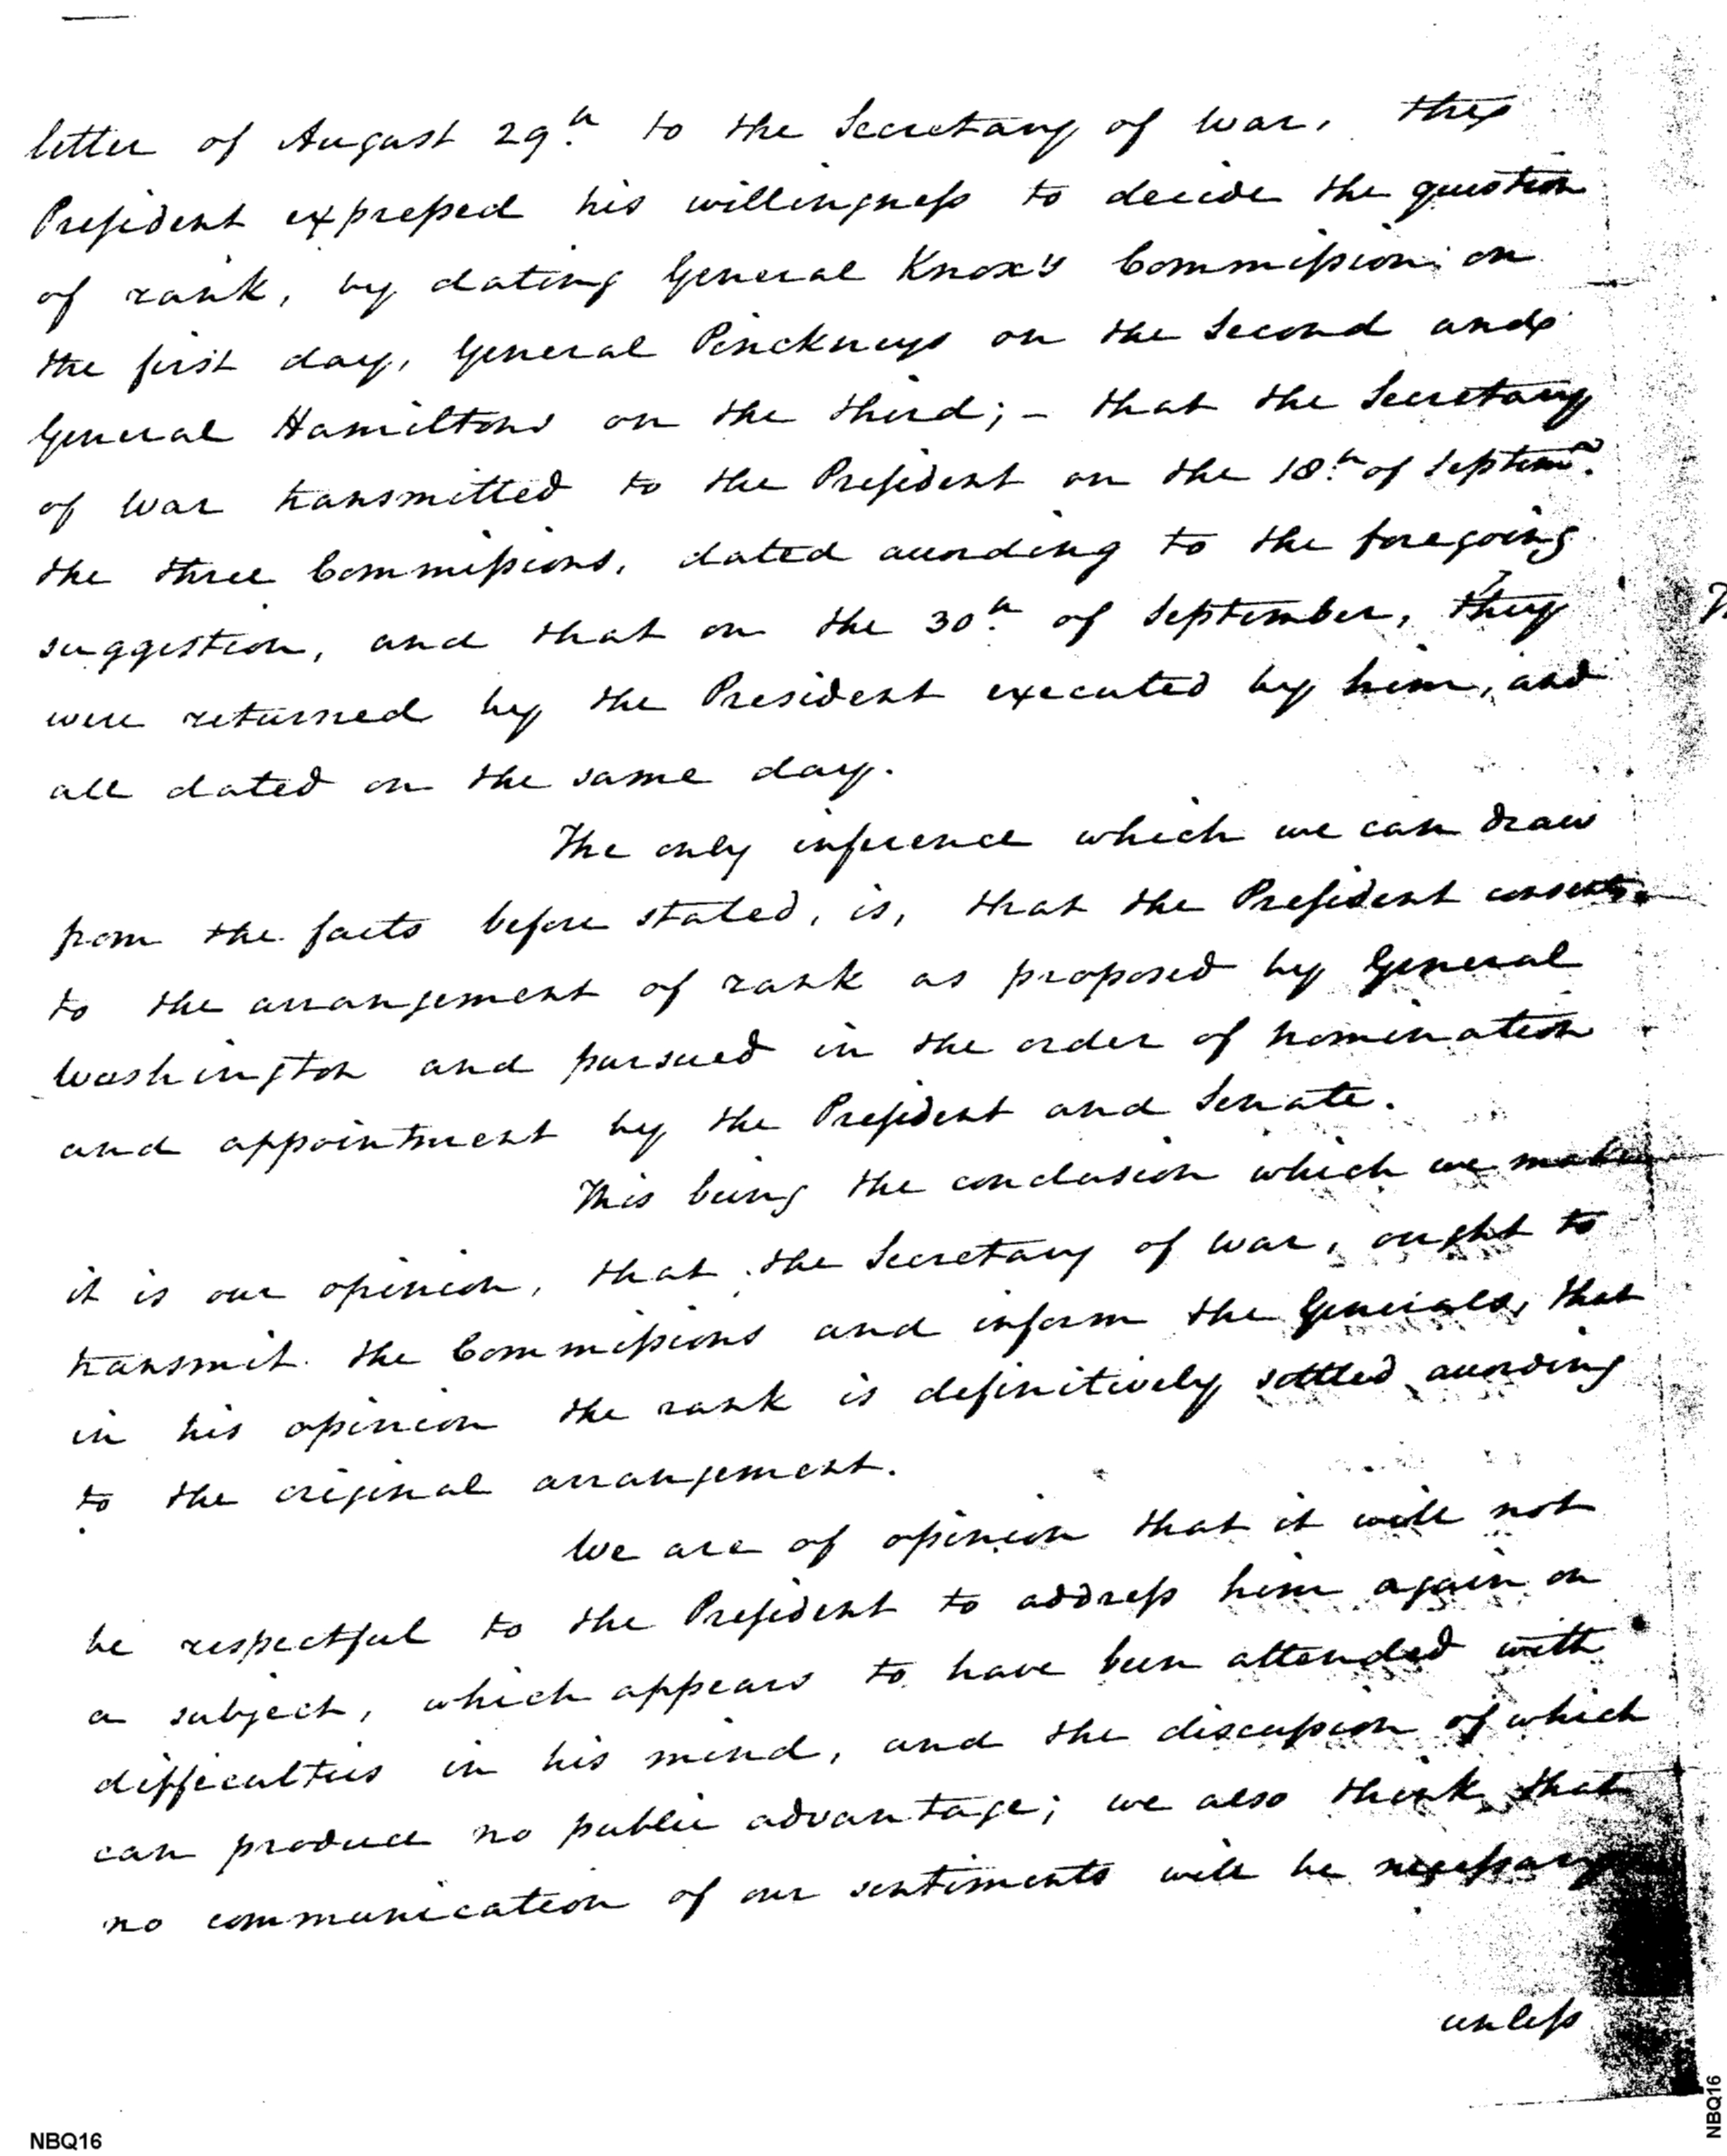 letter of August 29.th to the Secretary of War, the
President expressed his willingness to decide the question
of rank, by dating General Knox's Commission on
the first day, General Pinckneys on the Second and
General Hamiltons on the third; - that the Secretary
of War transmitted to the President on the 18.th of Septemr.
the three Commissions, dated according to the foregoing
suggestion, and that on the 30.th of September, they
were returned by the President executed by him, and
all dated on the same day.
The only inference which we can draw
from the facts before stated, is, that the President consents
to the arrangement of rank as proposed by General
Washington and pursued in the order of nomination
and appointment by the President and Senate.
This being the conclusion which we make
it is our opinion, that the Secretary of War, ought to
transmit the Commissions and inform the Generals, that
in his opinion the rank is definitively settled according
to the original arrangement.
We are of opinion that it will not
be respectful to the President to address him again on
a subject, which appears to have been attended with
difficulties in his mind, and the discussion of which
can produce no public advantage; we also think that
no communication of our sentiments will be necessary
unless
NBQ16
NBQ16